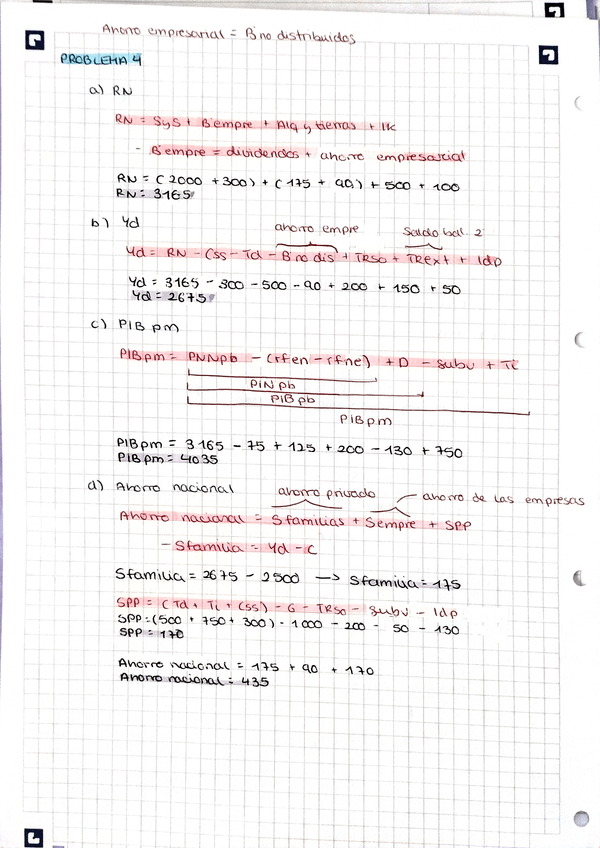 Ahorro empresarial = B no distribuidos
PROBLEMA 4
a) RN
RN = SyS + Bempre + Alq y tierras + IK
- Bempre = dividendos + ahorro empresarial
RN = (2000 + 300) + (175 + 90) + 500 + 100
RN = 3165
b) Yd
ahorro empre saldo bal. 2
Yd = RN - Css - Td - B no dis + TRSO + TRext + Idp
Yd = 3165 - 300 - 500 - 90 + 200 + 150 + 50
Yd = 2675
c) PIB pm
PIBpm = PNNpb - (rfen - rfne) + D - subv + Ti
PINpb
PIBpb
PIBpm
PIBpm = 3165 - 75 + 125 + 200 - 130 + 750
PIBpm = 4035
d) Ahorro nacional
ahorro privado ahorro de las empresas
Ahorro nacional = Sfamilias + Sempre + SPP
- Sfamilia = Yd - C
Sfamilia = 2675 - 2500 → Sfamilia = 175
SPP = (Td + Ti + Css) - G - TRSO - Subv - Idp
SPP = (500 + 750 + 300) - 1000 - 200 - 50 - 130
SPP = 170
Ahorro nacional = 175 + 90 + 170
Ahorro nacional = 435